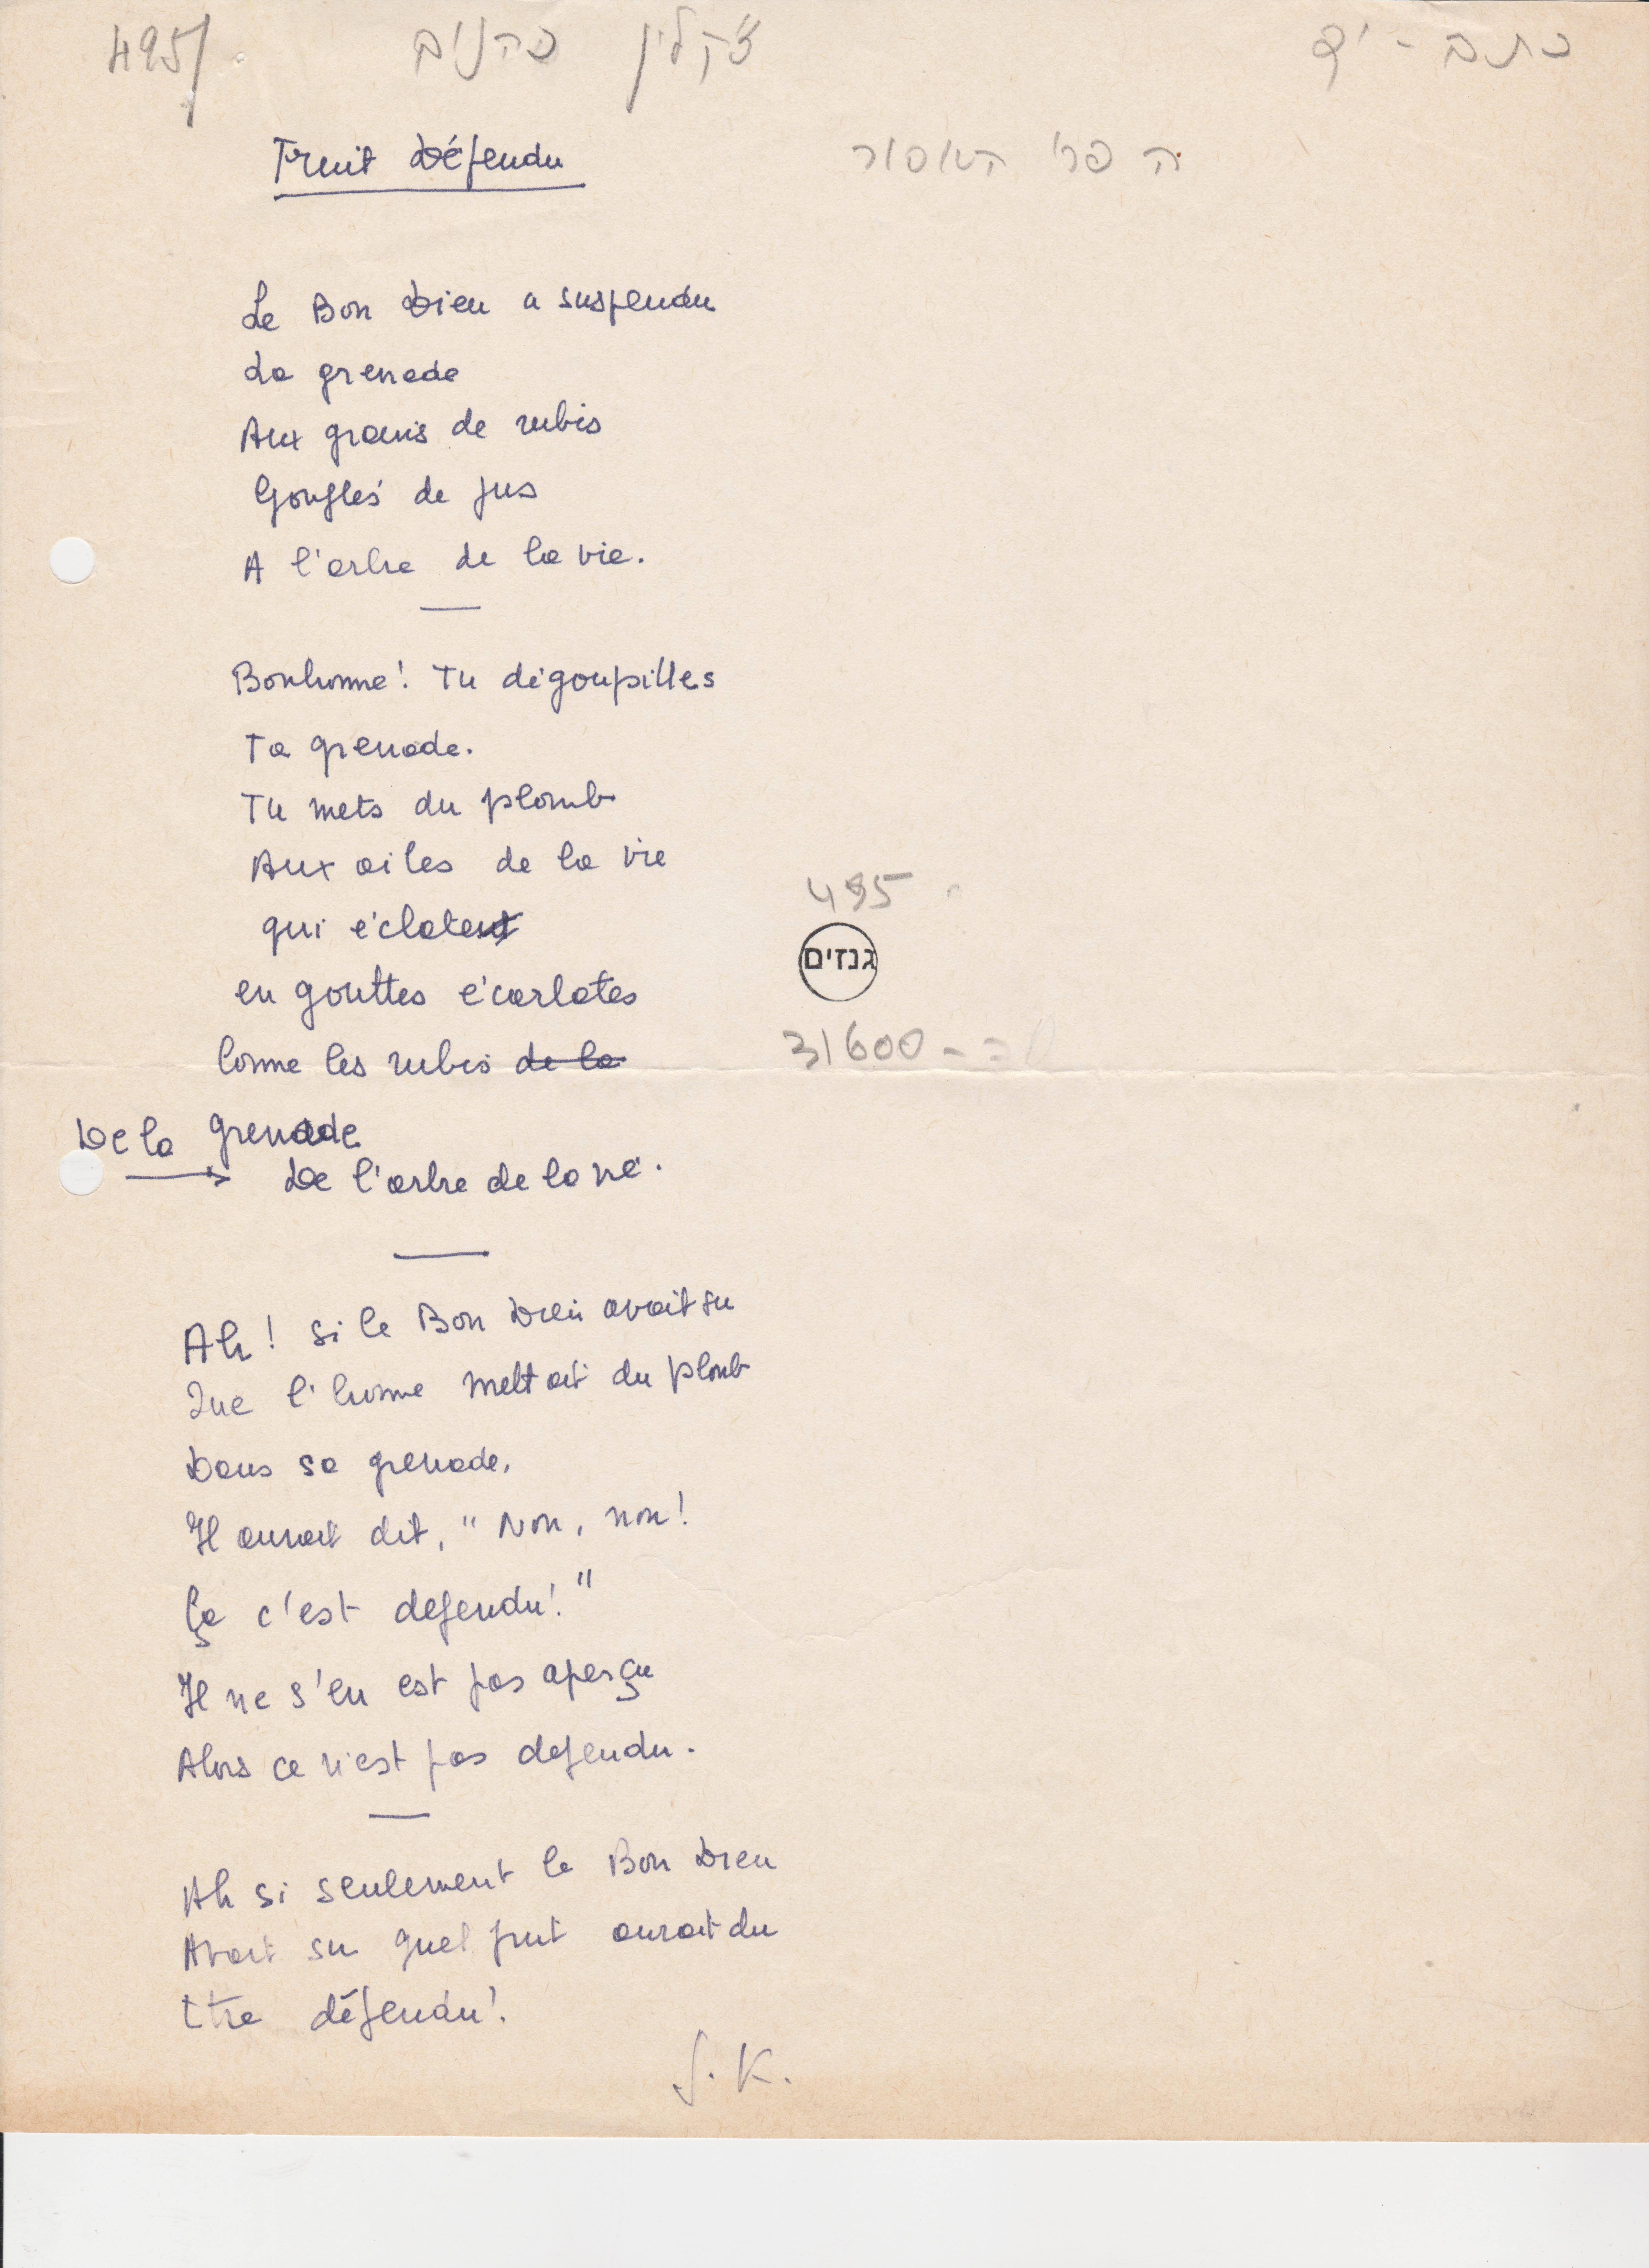 כתב-יד ז'קלין כהנוב 495/
Fruit Défendu
הפרי האסור
Le Bon Dieu a suspendu
La grenade
Aux grains de rubis
Gonflés de jus
A l'arbre de la vie.
Bonhomme! Tu dégoupilles
Ta grenade.
Tu mets du plomb
Aux ailes de la vie
qui éclatent
en gouttes écarlates
Comme les rubis de la
De la grenade
De l'arbre de la vie.
495
גנזים
31600 - כ
Ah! si le Bon Dieu avait su
Que l'homme mettait du plomb
Dans sa grenade,
Il aurait dit, "Non, non!
Ça c'est defendu!"
Il ne s'en est pas aperçu
Alors ce n'est pas defendu.
Ah si seulement le Bon Dieu
Avait su quel fruit aurait du
Etre défendu!
J. K.